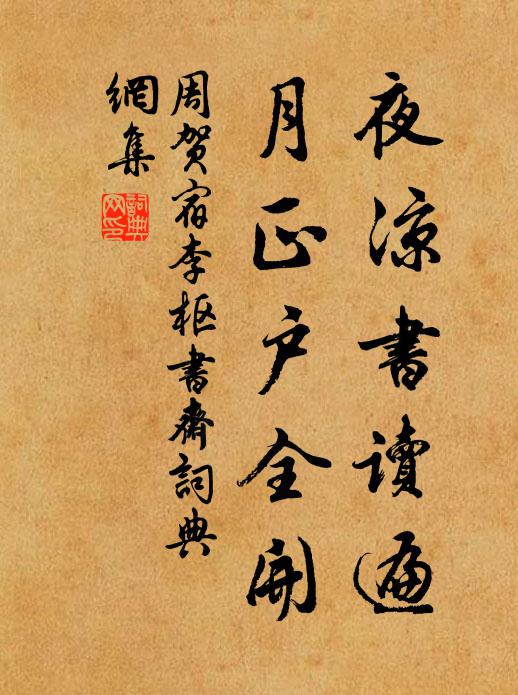 夜涼書讀遍
月正戶全開
周賀宿李枢書齋詞典
網集
詞典网印